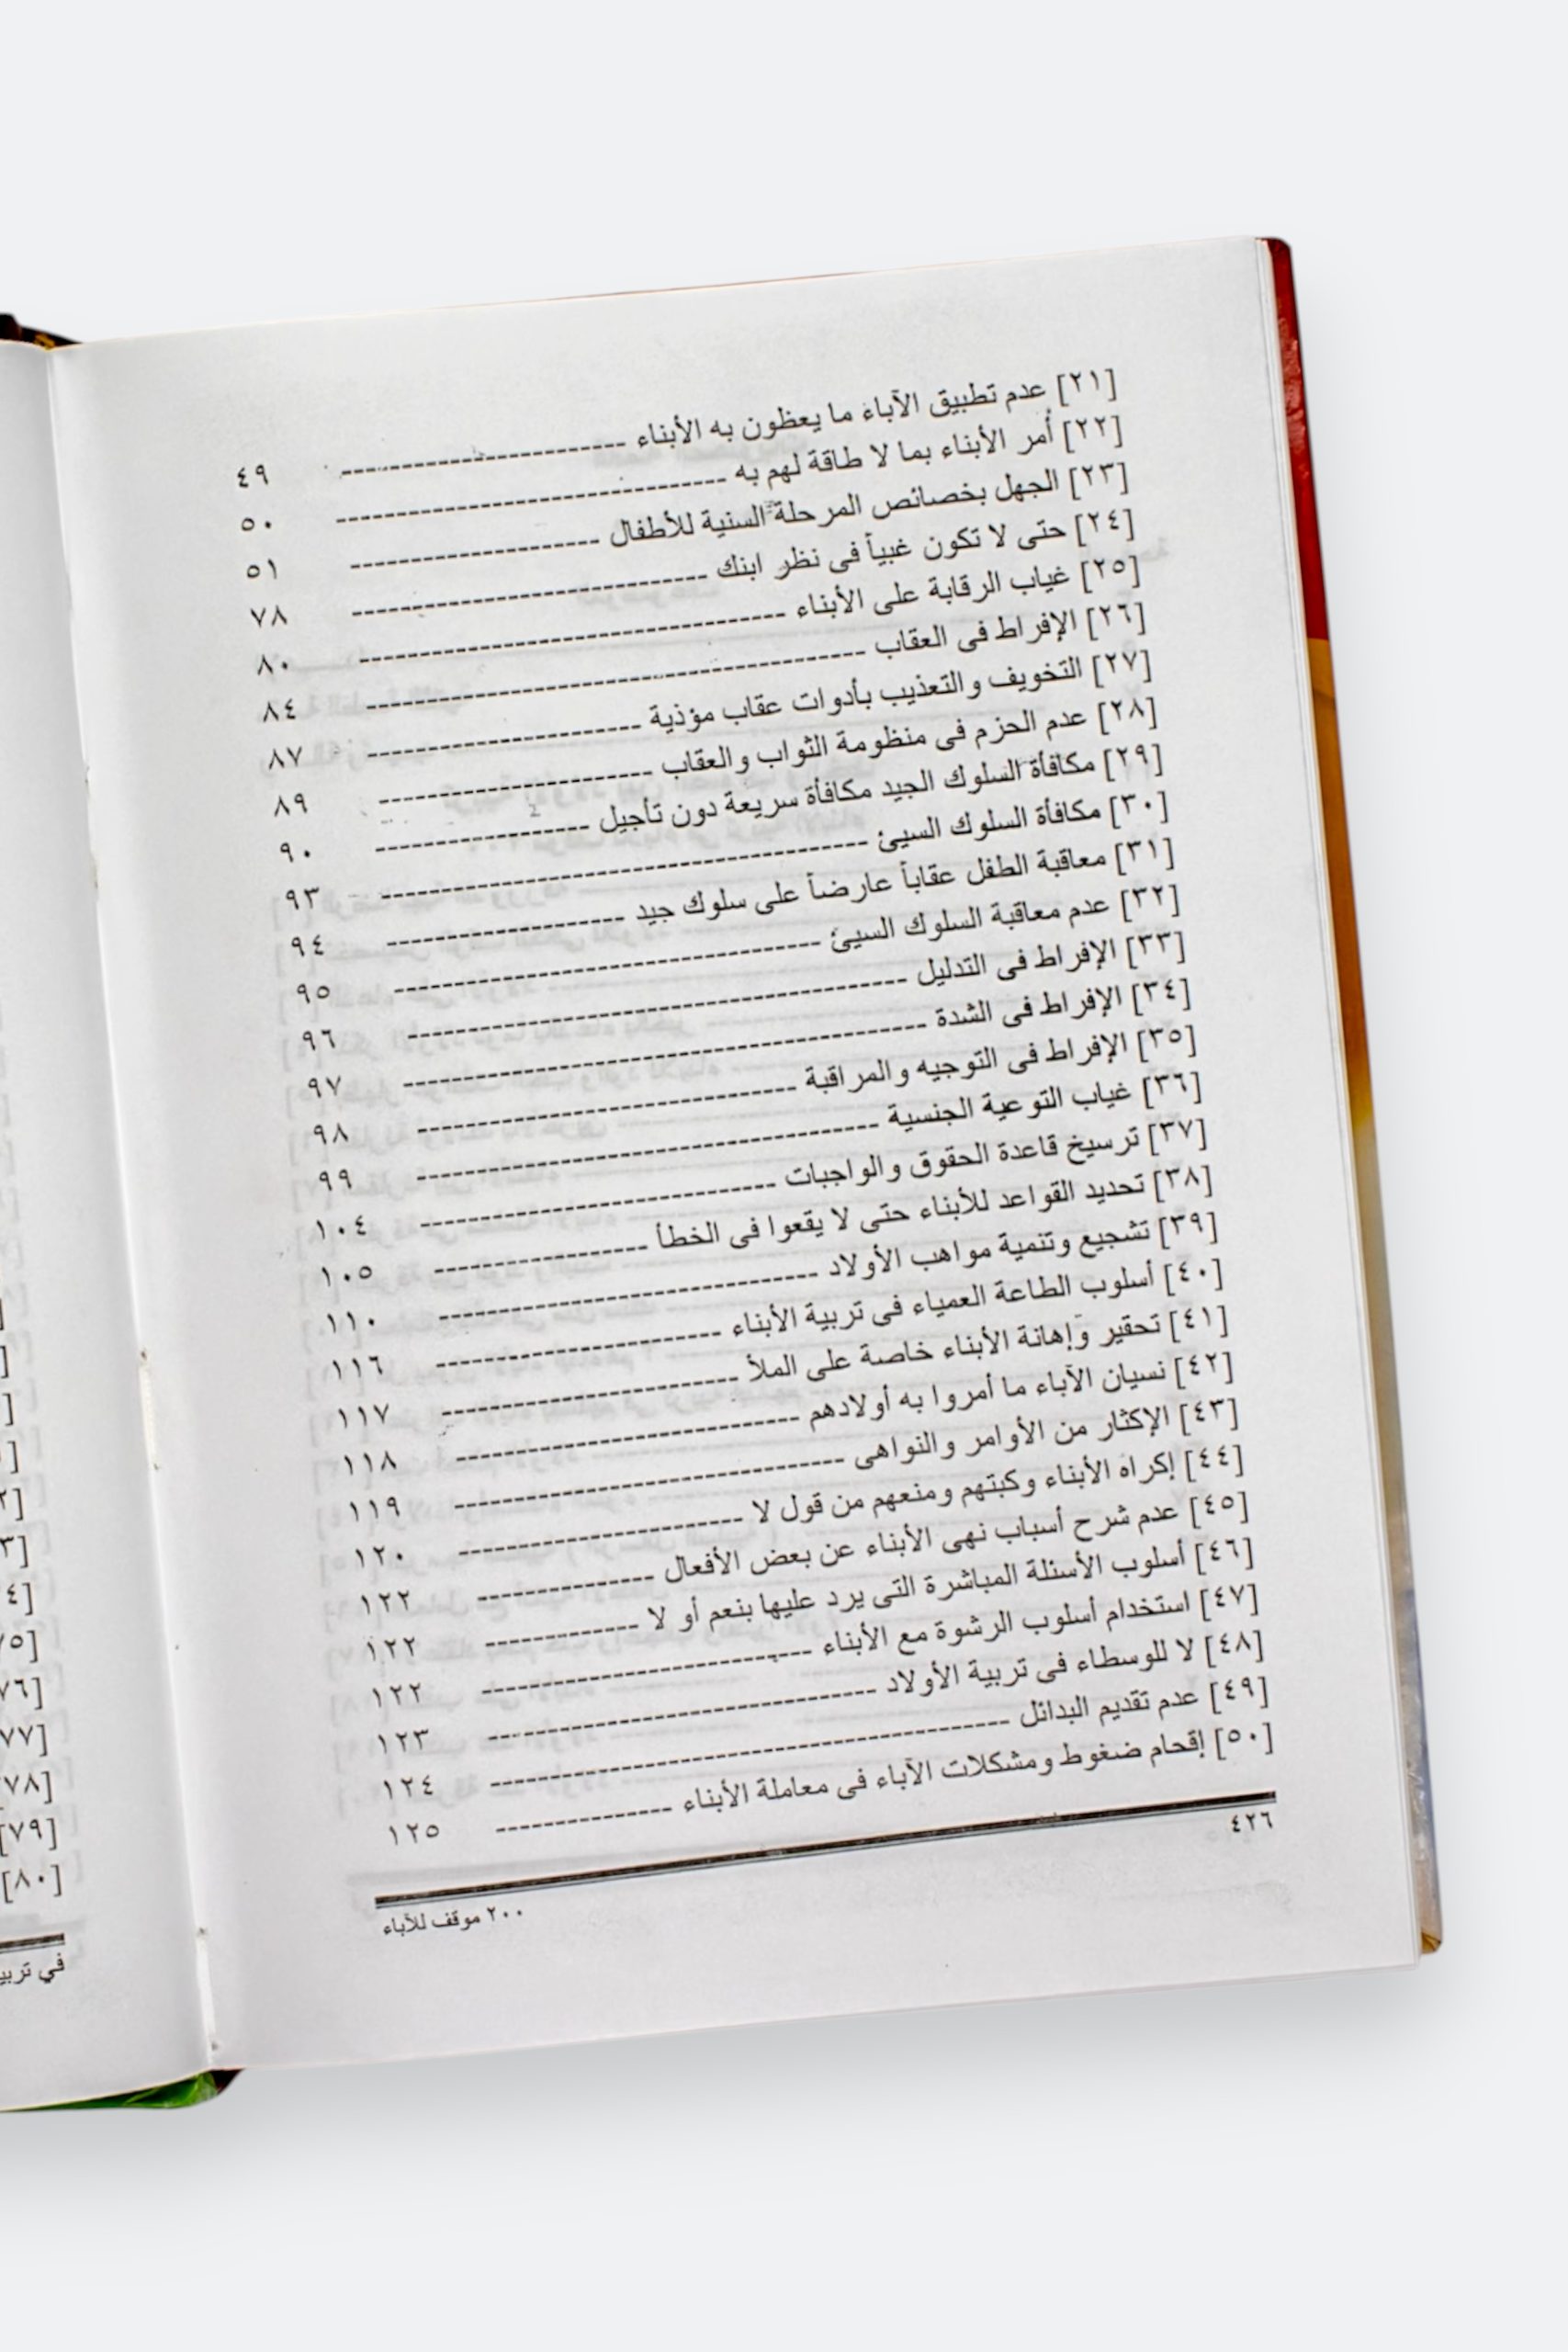 [٢١] عدم تطبيق الآباء ما يعظون به الأبناء ------------------------ ٤٩
[٢٢] أمر الأبناء بما لا طاقة لهم به ------------------------ ٥٠
[٢٣] الجهل بخصائص المرحلة السنية للأطفال ------------------------ ٥١
[٢٤] حتى لا تكون غبياً فى نظر ابنك ------------------------ ٧٨
[٢٥] غياب الرقابة على الأبناء ------------------------ ٨٠
[٢٦] الإفراط فى العقاب ------------------------ ٨٤
[٢٧] التخويف والتعذيب بأدوات عقاب مؤذية ------------------------ ٨٧
[٢٨] عدم الحزم فى منظومة الثواب والعقاب ------------------------ ٨٩
[٢٩] مكافأة السلوك الجيد مكافأة سريعة دون تأجيل ------------------------ ٩٠
[٣٠] مكافأة السلوك السيئ ------------------------ ٩٣
[٣١] معاقبة الطفل عقاباً عارضاً على سلوك جيد ------------------------ ٩٤
[٣٢] عدم معاقبة السلوك السيئ ------------------------ ٩٥
[٣٣] الإفراط فى التدليل ------------------------ ٩٦
[٣٤] الإفراط فى الشدة ------------------------ ٩٧
[٣٥] الإفراط فى التوجيه والمراقبة ------------------------ ٩٨
[٣٦] غياب التوعية الجنسية ------------------------ ٩٩
[٣٧] ترسيخ قاعدة الحقوق والواجبات ------------------------ ١٠٤
[٣٨] تحديد القواعد للأبناء حتى لا يقعوا فى الخطأ ------------------------ ١٠٥
[٣٩] تشجيع وتنمية مواهب الأولاد ------------------------ ١١٠
[٤٠] أسلوب الطاعة العمياء فى تربية الأبناء ------------------------ ١١٦
[٤١] تحقير وإهانة الأبناء خاصة على الملأ ------------------------ ١١٧
[٤٢] نسيان الآباء ما أمروا به أولادهم ------------------------ ١١٨
[٤٣] الإكثار من الأوامر والنواهى ------------------------ ١١٩
[٤٤] إكراه الأبناء وكبتهم ومنعهم من قول لا ------------------------ ١٢٠
[٤٥] عدم شرح أسباب نهى الأبناء عن بعض الأفعال ------------------------ ١٢٢
[٤٦] أسلوب الأسئلة المباشرة التى يرد عليها بنعم أو لا ------------------------ ١٢٢
[٤٧] استخدام أسلوب الرشوة مع الأبناء ------------------------ ١٢٢
[٤٨] لا للوسطاء فى تربية الأولاد ------------------------ ١٢٣
[٤٩] عدم تقديم البدائل ------------------------ ١٢٤
[٥٠] إقحام ضغوط ومشكلات الآباء فى معاملة الأبناء ------------------------ ١٢٥
٤٢٦
٢٠٠ موقف للآباء
٧٦]
٧٧]
٧٨]
[٧٩]
[٨٠]
في